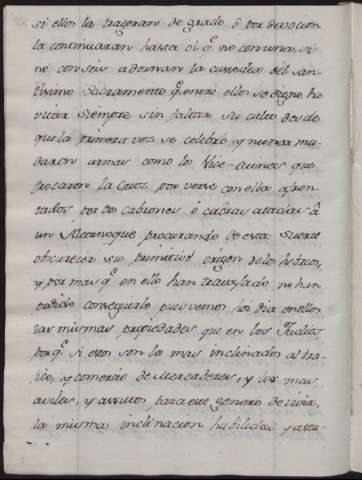 si ellos la trageran de grado ó por devocion
la continuaran hasta oi q.e no con una, si-
no con seis adornan la custodia del San-
tisimo Sacramento q.e entre ellos se digno ha-
vitar siempre sin faltar su culto desde
que la primera vez se celebró y nunca mu-
daron armas como los que
trocaron la Cruz por verse con ella afren-
tados por dos cabrones ó cabras atadas á
un Alcornoque procurando de esta suerte
obscurecer su primitivo origen de los hebreos,
y por mas q.e en ello han travajado no han
podido conseguirlo pues vemos hoi dia en ellos
las mismas propiedades que en los Judios,
porq.e si estos son los mas inclinados al tra-
to, y comercio de Mercaderes, y los mas
aviles, y astutos para este genero de vivir,
la misma inclinacion habilidad y astu-